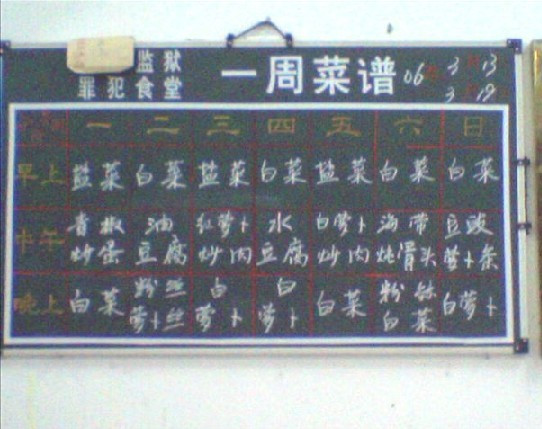 监狱
罪犯食堂
一周菜谱 06 3 13
3 19
一 二 三 四 五 六 日
早上 盐菜 白菜 盐菜 白菜 盐菜 白菜 白菜
中午 青椒炒蛋 油豆腐 红萝卜炒肉 水豆腐 白萝卜炒肉 海带炖骨头 豆豉萝卜条
晚上 白菜 粉丝萝卜丝 白萝卜 白萝卜 白菜 粉丝白菜 白萝卜